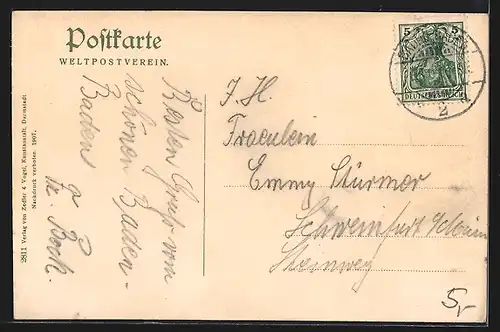 Postkarte
WELTPOSTVEREIN.
5 5
DEUTSCHES REICH
2
Besten Gruß vom
schönen Baden-
Baden
Fr. Bock.
I. H.
Fraeulein
Emmy Stürmer
Schweinfurt
Steinweg
5,-
2811 Verlag von Zedler & Vogel, Kunstanstalt, Darmstadt.
Nachdruck verboten. 1907.